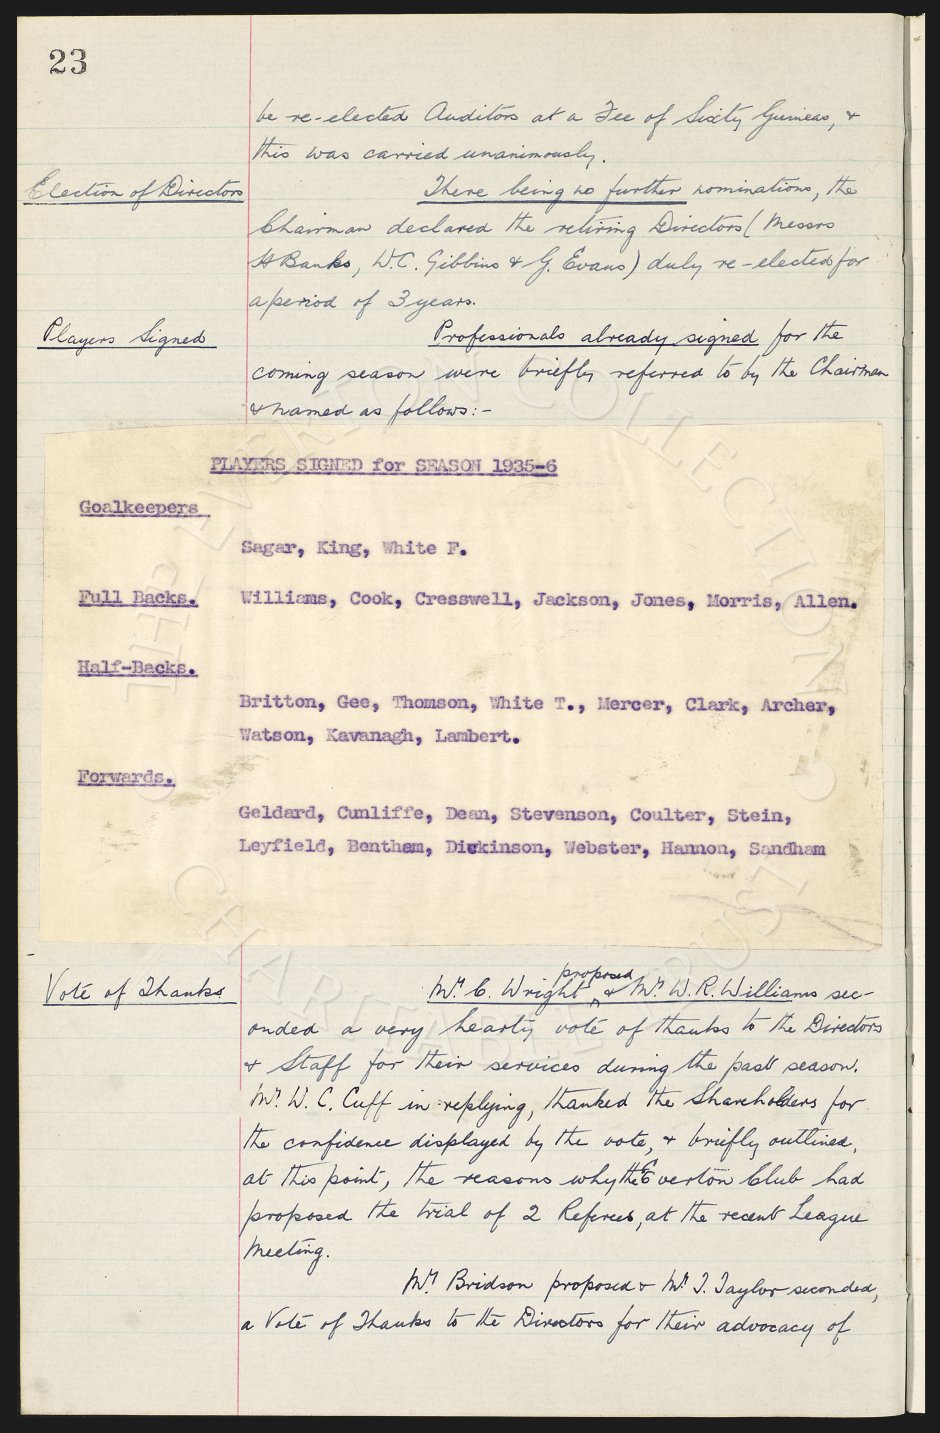 23
be re-elected Auditors at a Fee of Sixty Guineas, &
this was carried unanimously.
Election of Directors
There being no further nominations, the
Chairman declared the retiring Directors (Messrs
H Banks, W.C. Gibbins & G. Evans) duly re-elected for
a period of 3 years.
Players Signed
Professionals already signed for the
coming season were briefly referred to by the Chairman
& named as follows:-
PLAYERS SIGNED for SEASON 1935-6
Goalkeepers
Sagar, King, White F.
Full Backs. Williams, Cook, Cresswell, Jackson, Jones, Morris, Allen.
Half-Backs.
Britton, Gee, Thomson, White T., Mercer, Clark, Archer,
Watson, Kavanagh, Lambert.
Forwards.
Geldard, Cunliffe, Dean, Stevenson, Coulter, Stein,
Leyfield, Bentham, Dickinson, Webster, Hannon, Sandham
Vote of Thanks
Mr. C. Wright proposed & Mr. W. R. Williams sec-
onded a very hearty vote of thanks to the Directors
& Staff for their services during the past season.
Mr. W. C. Cuff in replying, thanked the Shareholders for
the confidence displayed by the vote, & briefly outlined,
at this point, the reasons why the Everton Club had
proposed the trial of 2 Referees, at the recent League
Meeting.
Mr. Bridson proposed & Mr. T. Taylor seconded,
a Vote of Thanks to the Directors for their advocacy of
THE EVERTON COLLECTION
CHARITABLE TRUST